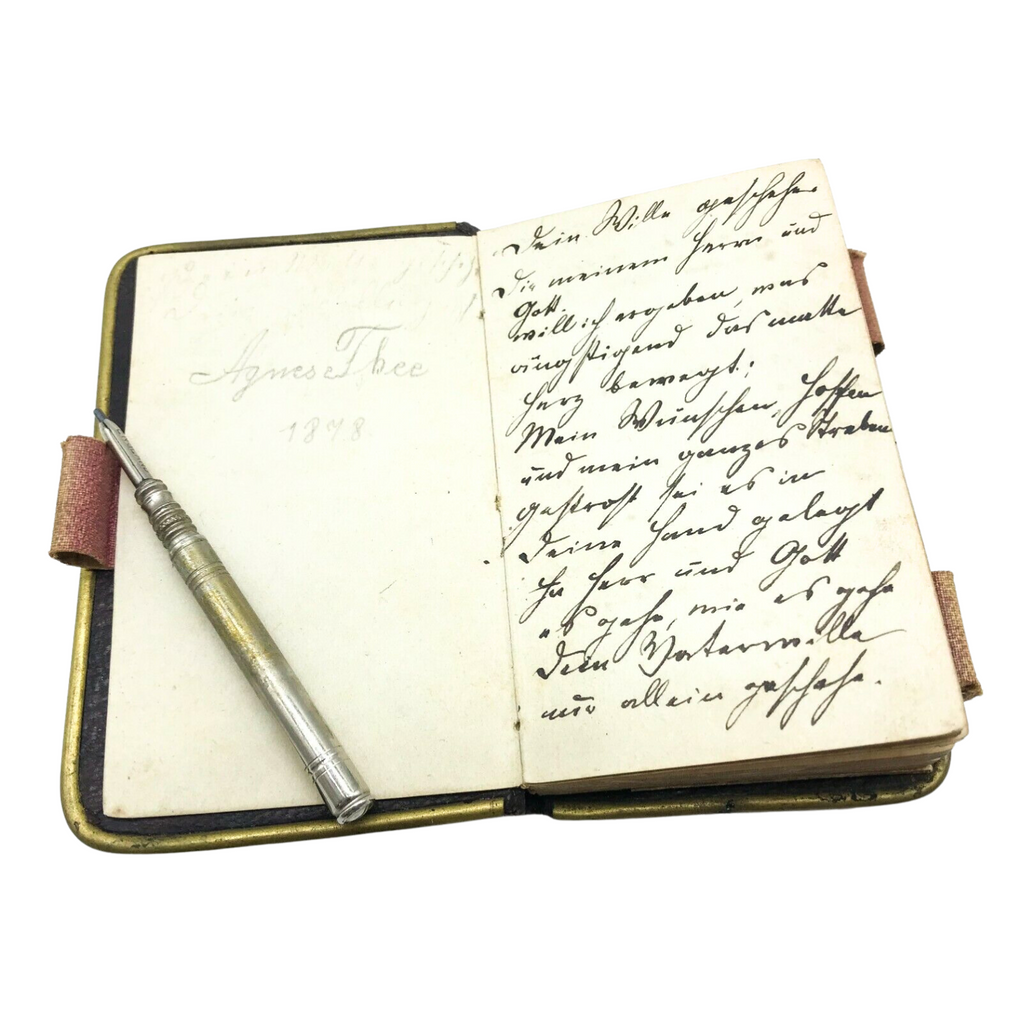 Agnes Thee
1878
Dein Wille geschehe.
Dir meinem Herrn und
Gott.
will ich ergeben, was
ängstigend das matte
Herz bewegt;
Mein Wünschen, Hoffen
und mein ganzes Streben
getrost sei es in
Deine Hand gelegt
Herr und Gott
es gehe, wie es gehe
Dein Vaterwille
nur allein geschehe.